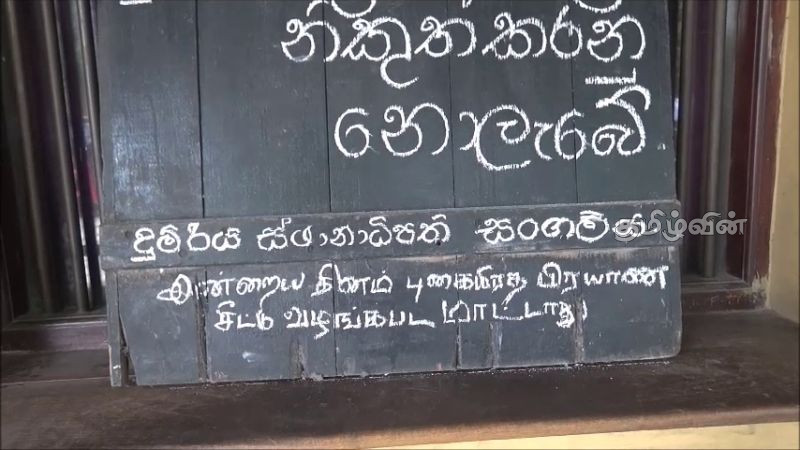 නිකුත් කරනු
නොලැබේ.
දුම්රිය ස්ථානාධිපති සංගමය
தமிழ்வின்
இன்றைய தினம் புகையிரத பிரயாண
சிட்டு வழங்கபட மாட்டாது